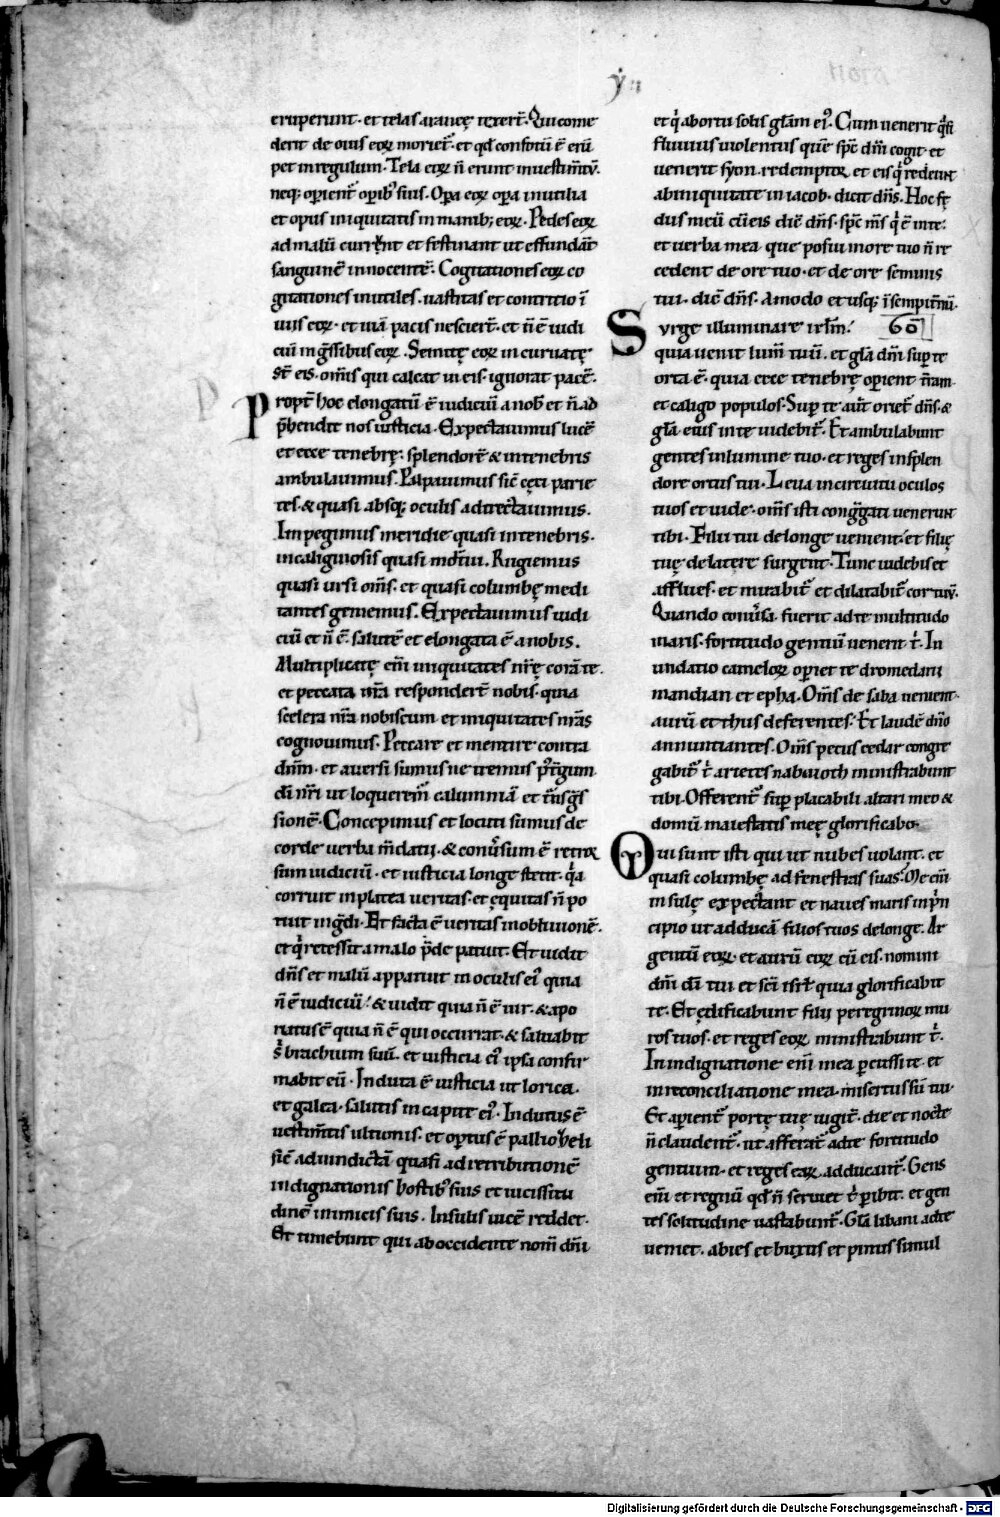 .y.
eruperunt · et telas araneę texer̄t · Qui come
derit de ouis eoꝝ moriet᷑ · et qd̄ confotū ē erū
pet in regulum · Tela eoꝝ ñ erunt in uestim̄tū ·
neq; opient᷑ opib᷒ suis · Opa eoꝝ opa inutilia
et opus iniquitatis in manib; eoꝝ · Pedes eoꝝ
ad malū currēnt et festinant ut effundāt
sanguinē innocentē · Cogitationes eoꝝ co
gitationes inutiles · uastitas et contritio ī
uiis eoꝝ · et uiā pacis nescier̄t · et ñ ē iudi
ciū in gͣssibus eoꝝ · Semitę eoꝝ incuruatę
st̄ eis · om̄is qui calcat in eis · ignorat pacē ·
Propt̄ hoc elongatū ē iudiciū a nob̄ et ñ ad
p̄hendit nos iusticia · Expectauimus lucē
et ecce tenebrę · splendorē & in tenebris
ambulauimus · Palpauimus sic̄ cęci parie
tes · & quasi absq; oculis adtrectauimus ·
Impegimus meridie quasi in tenebris ·
in caliginosis quasi mor̄tui · Rugiemus
quasi ursi om̄s · et quasi columbę medi
tantes gememus · Expectauimus iudi
ciū et ñ ē · salutē et elongata ē a nobis ·
Multiplicatę em̄ iniquitates nr̄ę corā te ·
et peccata nr̄a responder̄t nobis · quia
scelera nr̄a nobiscum · et iniquitates nr̄as
cognouimus · Peccare et mentire contra
dn̄m · et auersi sumus ne iremus p᷒t t̄gum
dī nr̄i ut loquerem̄ calumniā et tn̄sgͣs
sionē · Concepimus et locuti sumus de
corde uerba m̄datij · & conūsum ē retroꝝ
sum iudiciū · et iusticia longe stetit · qͥa
corruit in platea ueritas · et ęquitas ñ po
tuit ingͣdi · Et facta ē ueritas in obliuionē ·
et qͥ recessit a malo p̄de patuit · Et uidit
dn̄s et malū apparuit in oculis ei᷒ quia
ñ ē iudiciū · & uidit quia ñ ē uir · & apo
riatus ē quia ñ ē qui occurrat · & saluabit
sͥ brachium suū · et iusticia ei᷒ ipsa confir
mabit eū · Induta ē iusticia ut lorica ·
et galea · salutis in capite ei᷒ · Indutus ē
uestim̄tis ultionis · et optus ē pallio zeli
sic̄ ad uindictā quasi ad retributionē
indignationis hostib᷒ suis et uicissitu
dinē inimicis suis · Insulis uicē reddet ·
Et timebunt qui ab occidente nom̄ dn̄i
et qͥ ab ortu solis glām ei᷒ · Cum uenerit qͣsi
fluuius uiolentus quē spc̄ dn̄i cogit · et
uenerit syon redemptor · et eis qͥ redeunt
ab iniquitate in iacob · dicit dn̄s · Hoc fę
dus meū cū eis dic̄ dn̄s · spc̄ m̄s qͥ ē in te ·
et uerba mea que posui in ore tuo ñ re
cedent de ore tuo · et de ore seminis
tui · dic̄ dn̄s · Amodo et usq; ī sempitn̄ū ·
Syrge illuminare irl̄m · 60
quia uenit lum̄ tuū · et glā dn̄i sup te
orta ē · quia ecce tenebrę opient t̄ram ·
et caligo populos · Sup te aūt oriet᷑ dn̄s · &
glā eius in te uidebit᷑ · Et ambulabunt
gentes in lumine tuo · et reges in splen
dore ortus tui · Leua in circuitu oculos
tuos et uide · om̄s isti congͣgati uenerunt
tibi · Filii tui de longe uenient · et filię
tuę de latere surgent · Tunc uidebis et
afflues · et mirabit᷑ et dilatabit᷑ cor tuū ·
Quando conūsa fuerit ad te multitudo
maris · fortitudo gentiū uenerit tͥ · In
undatio cameloꝝ opiet te dromedarii
madian et epha · Om̄s de saba uenient ·
aurū et thus deferentes · Et laudē dn̄o
annuntiantes · Om̄e pecus cedar congre
gabit᷑ tͥ arietes nabaioth ministrabunt
tibi · Offerent᷑ sup placabili altari meo &
domū maiestatis meę glorificabo ·
Qui sunt isti qui ut nubes uolant · et
quasi columbę ad fenestras suas · Me em̄
insulę expectant et naues maris in pͥn
cipio ut adducā filios tuos de longe · Ar
gentū eoꝝ · et aurū eoꝝ cū eis · nomini
dn̄i dī tui et sc̄i isrl̄ quia glorificabit
te · Et ędificabunt filij peregrinoꝝ mu
ros tuos · et reges eoꝝ ministrabunt tͥ ·
In indignatione em̄ mea pcussi te · et
in reconciliatione mea · misertus sū tui ·
Et apient᷑ portę tuę iugit̄ · die et nocte
ñ claudent᷑ · ut afferat᷑ ad te fortitudo
gentium · et reges eaꝝ adducant᷑ · Gens
em̄ et regnū qd̄ ñ seruiet tͥ pibit · et gen
tes solitudine uastabunt᷑ · Glā libani ad te
ueniet · abies et buxus et pinus simul
Digitalisierung gefördert durch die Deutsche Forschungsgemeinschaft - DFG